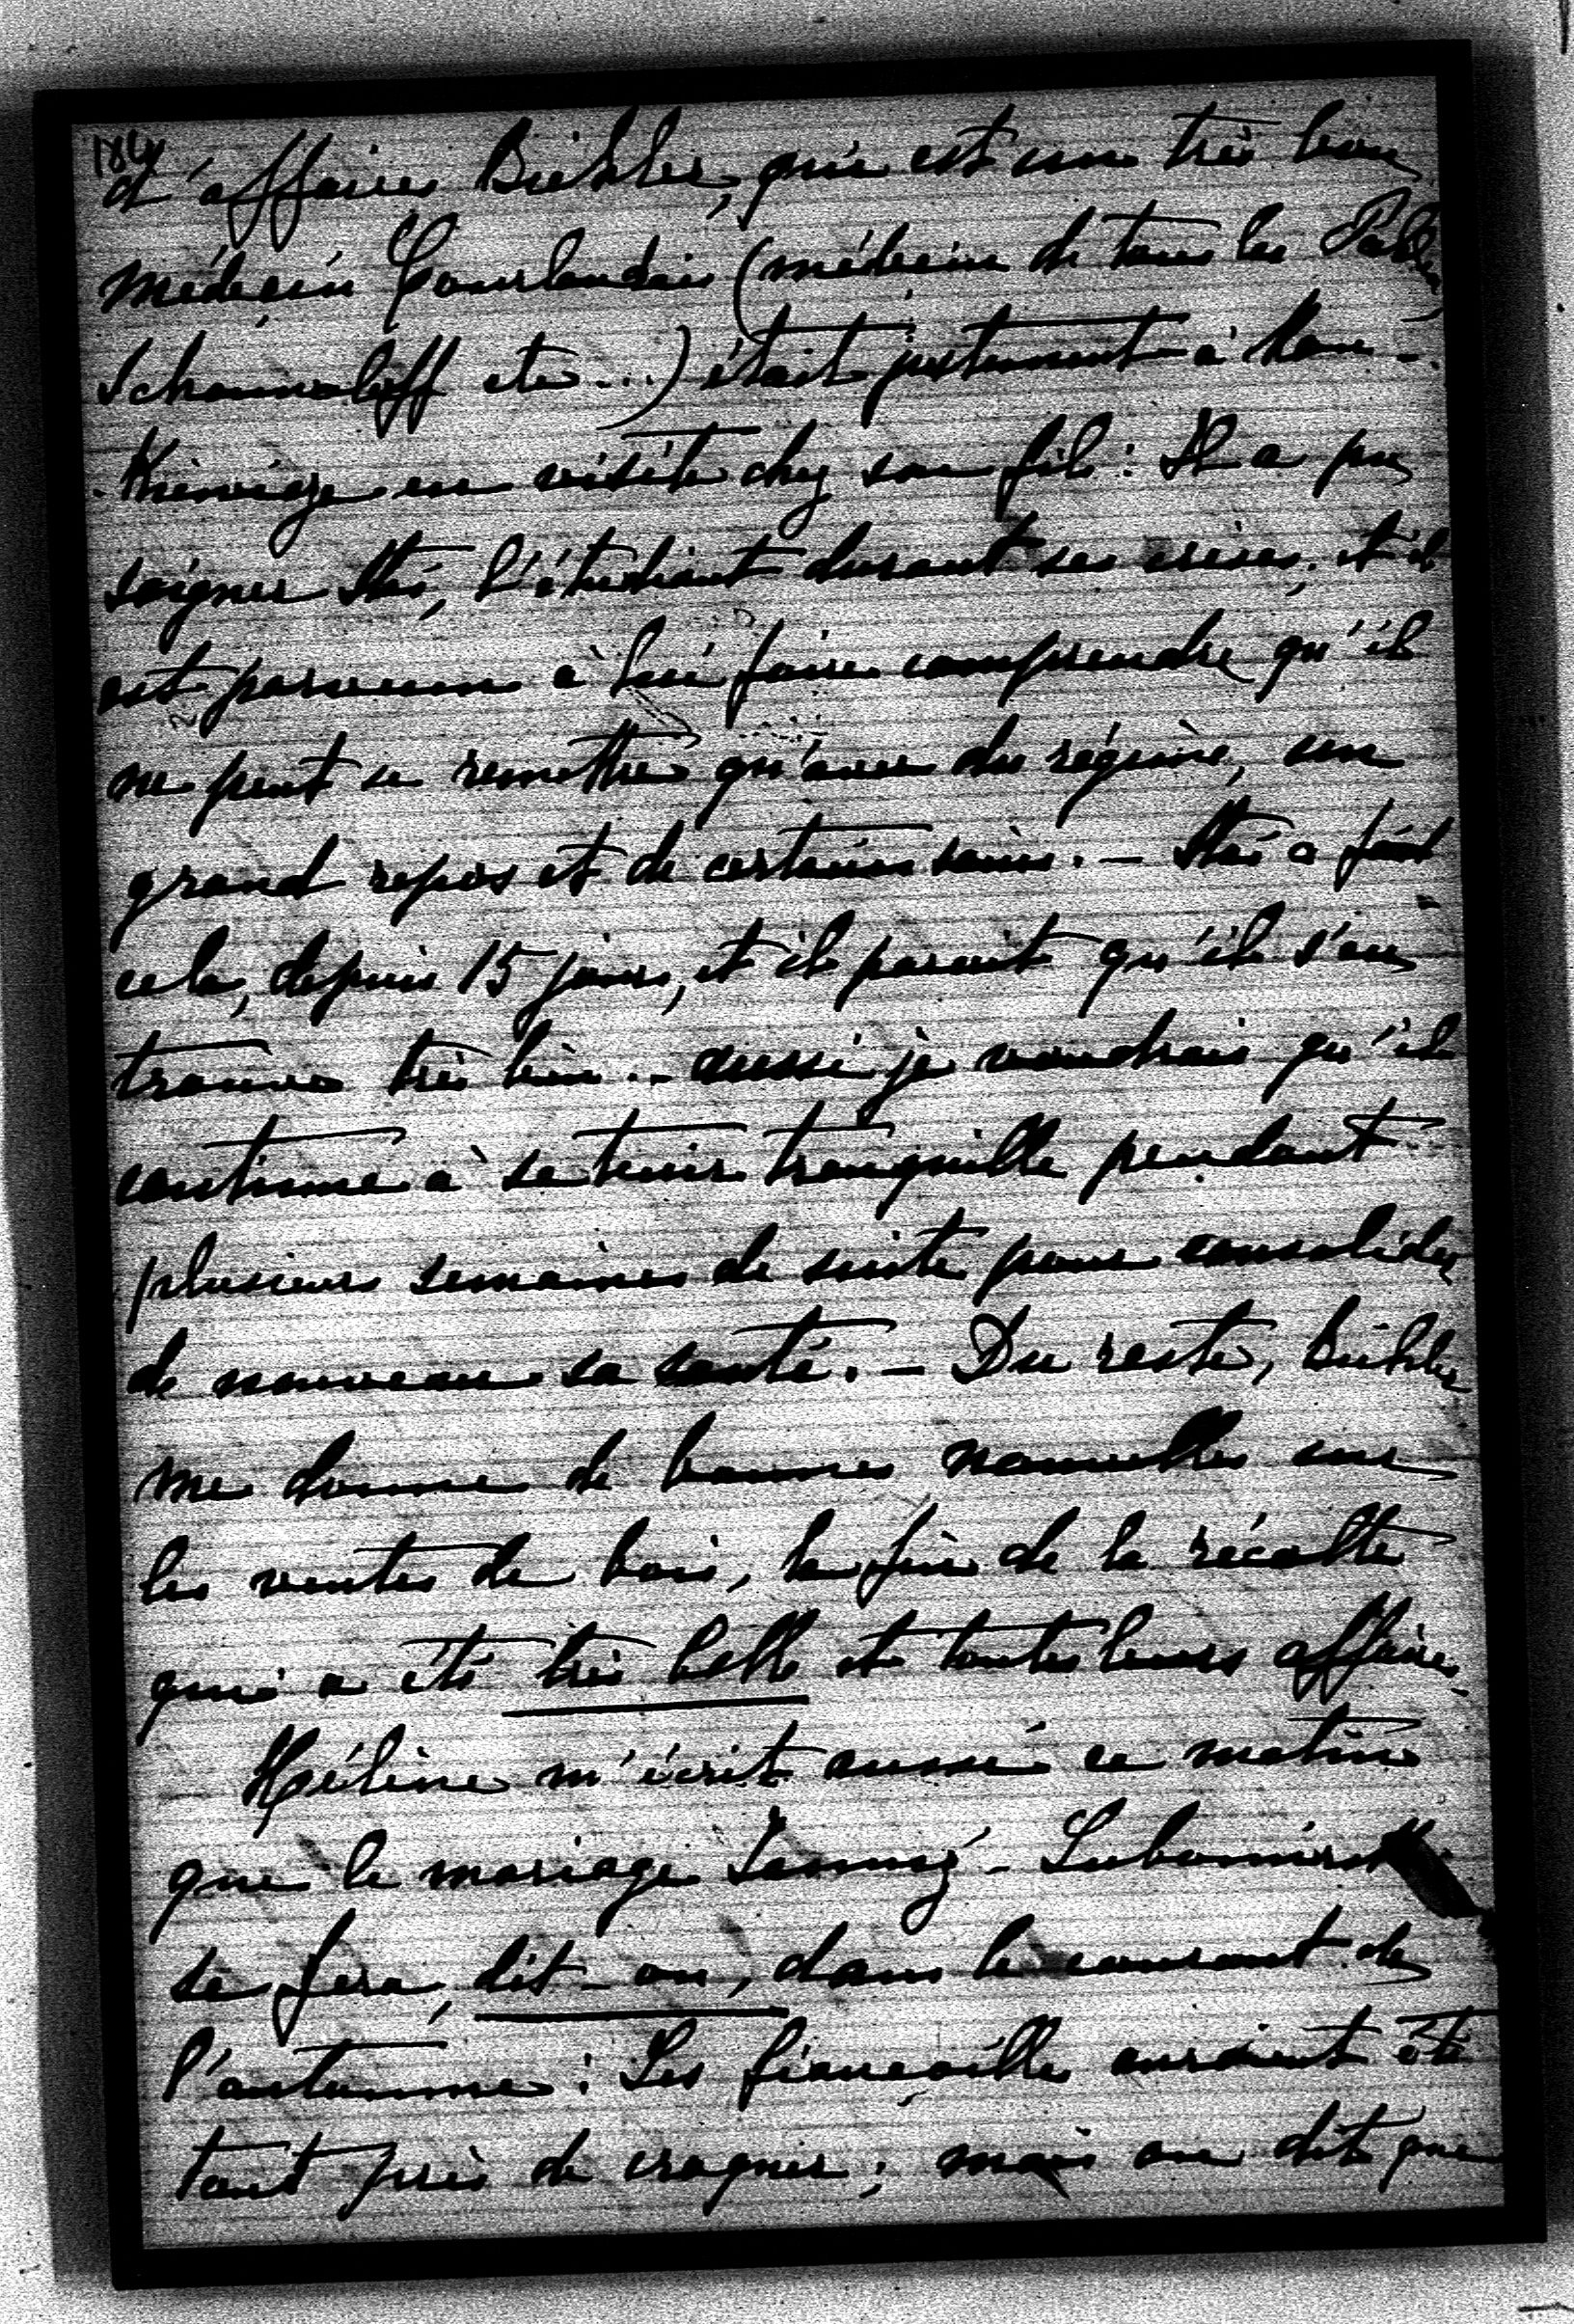 184
d'affaires Biehler, qui est un très bon
médecin Courlandais (médecin de tous les Pahlen,
Schouwaloff etc...) était justement à Hou-
en visite chez son fils : Il a pu
soigner Stás, l'étudiant durant ses crises, et il
est parvenu à lui faire comprendre qu'il
ne peut se remettre qu'avec du régime, un
grand repos et de certains soins. — Stás a fait
cela, depuis 15 jours, et il parait qu'il s'en
trouve très bien. — aussi je voudrais qu'il
continue à se tenir tranquille pendant
plusieurs semaines de suite pour consolider
de nouveau sa santé. — Du reste, Biehler
me donne de bonnes nouvelles sur
les ventes de bois, la fin de la récolte
qui a été très belle et toutes leurs affaires.
Hélène m'écrit aussi ce matin
que le mariage - Lubomirski
se fera, dit-on, dans le courant de
l'automne : Les fiançailles auraient été
tout près de craquer ; mais on dit que